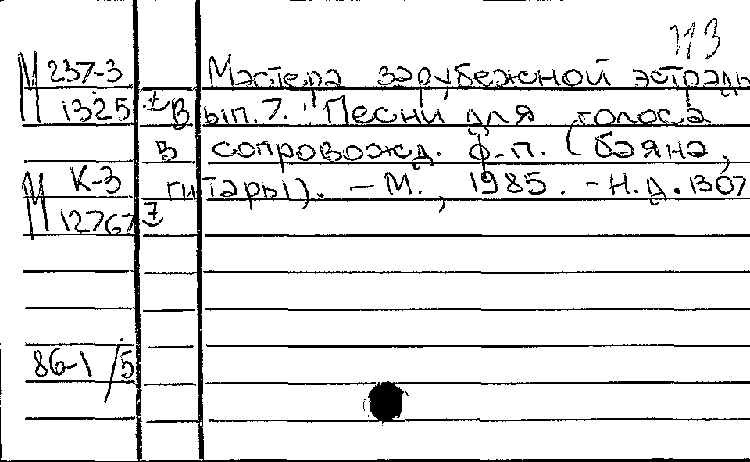 113
М 237-3 Мастера зарубежной эстрады
1325 Вып. 7. Песни для голоса
в сопровожд. ф.п. (баяна,
М К-3 гитары). – М., 1985. – Н.д. 1307
12767
86-1/5